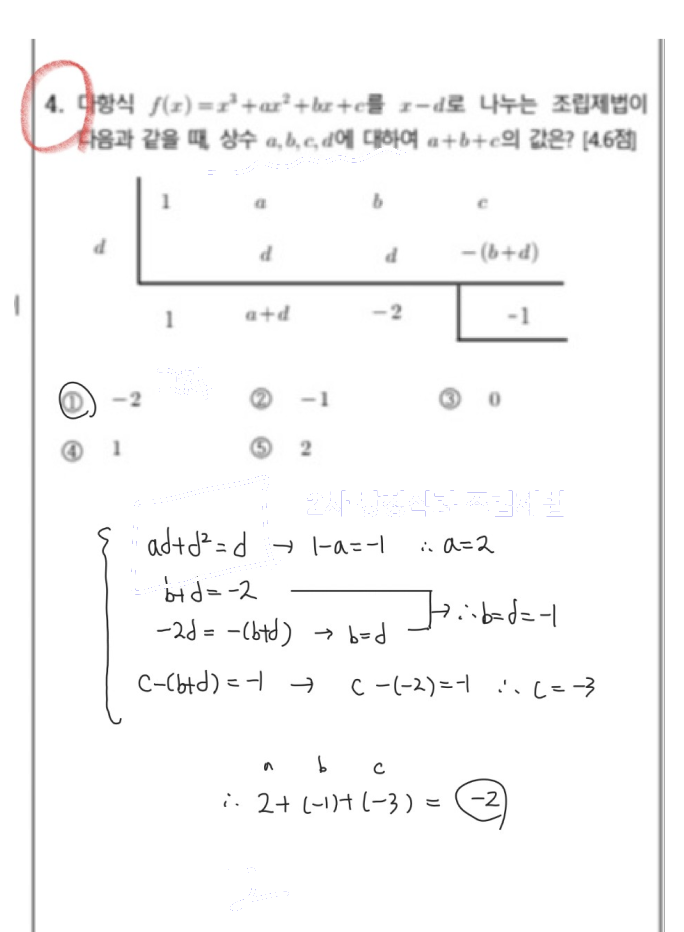 4. 다항식 f(x)=x³+ax²+bx+c를 x-d로 나누는 조립제법이
다음과 같을 때, 상수 a, b, c, d에 대하여 a+b+c의 값은? [4.6점]
1 a b c
d d d -(b+d)
1 a+d -2 -1
① -2 ② -1 ③ 0
④ 1 ⑤ 2
ad+d²=d → 1-a=-1 ∴ a=2
b+d=-2
-2d=-(b+d) → b=d → ∴ b=d=-1
c-(b+d)=-1 → c-(-2)=-1 ∴ c=-3
a b c
∴ 2+(-1)+(-3)=-2